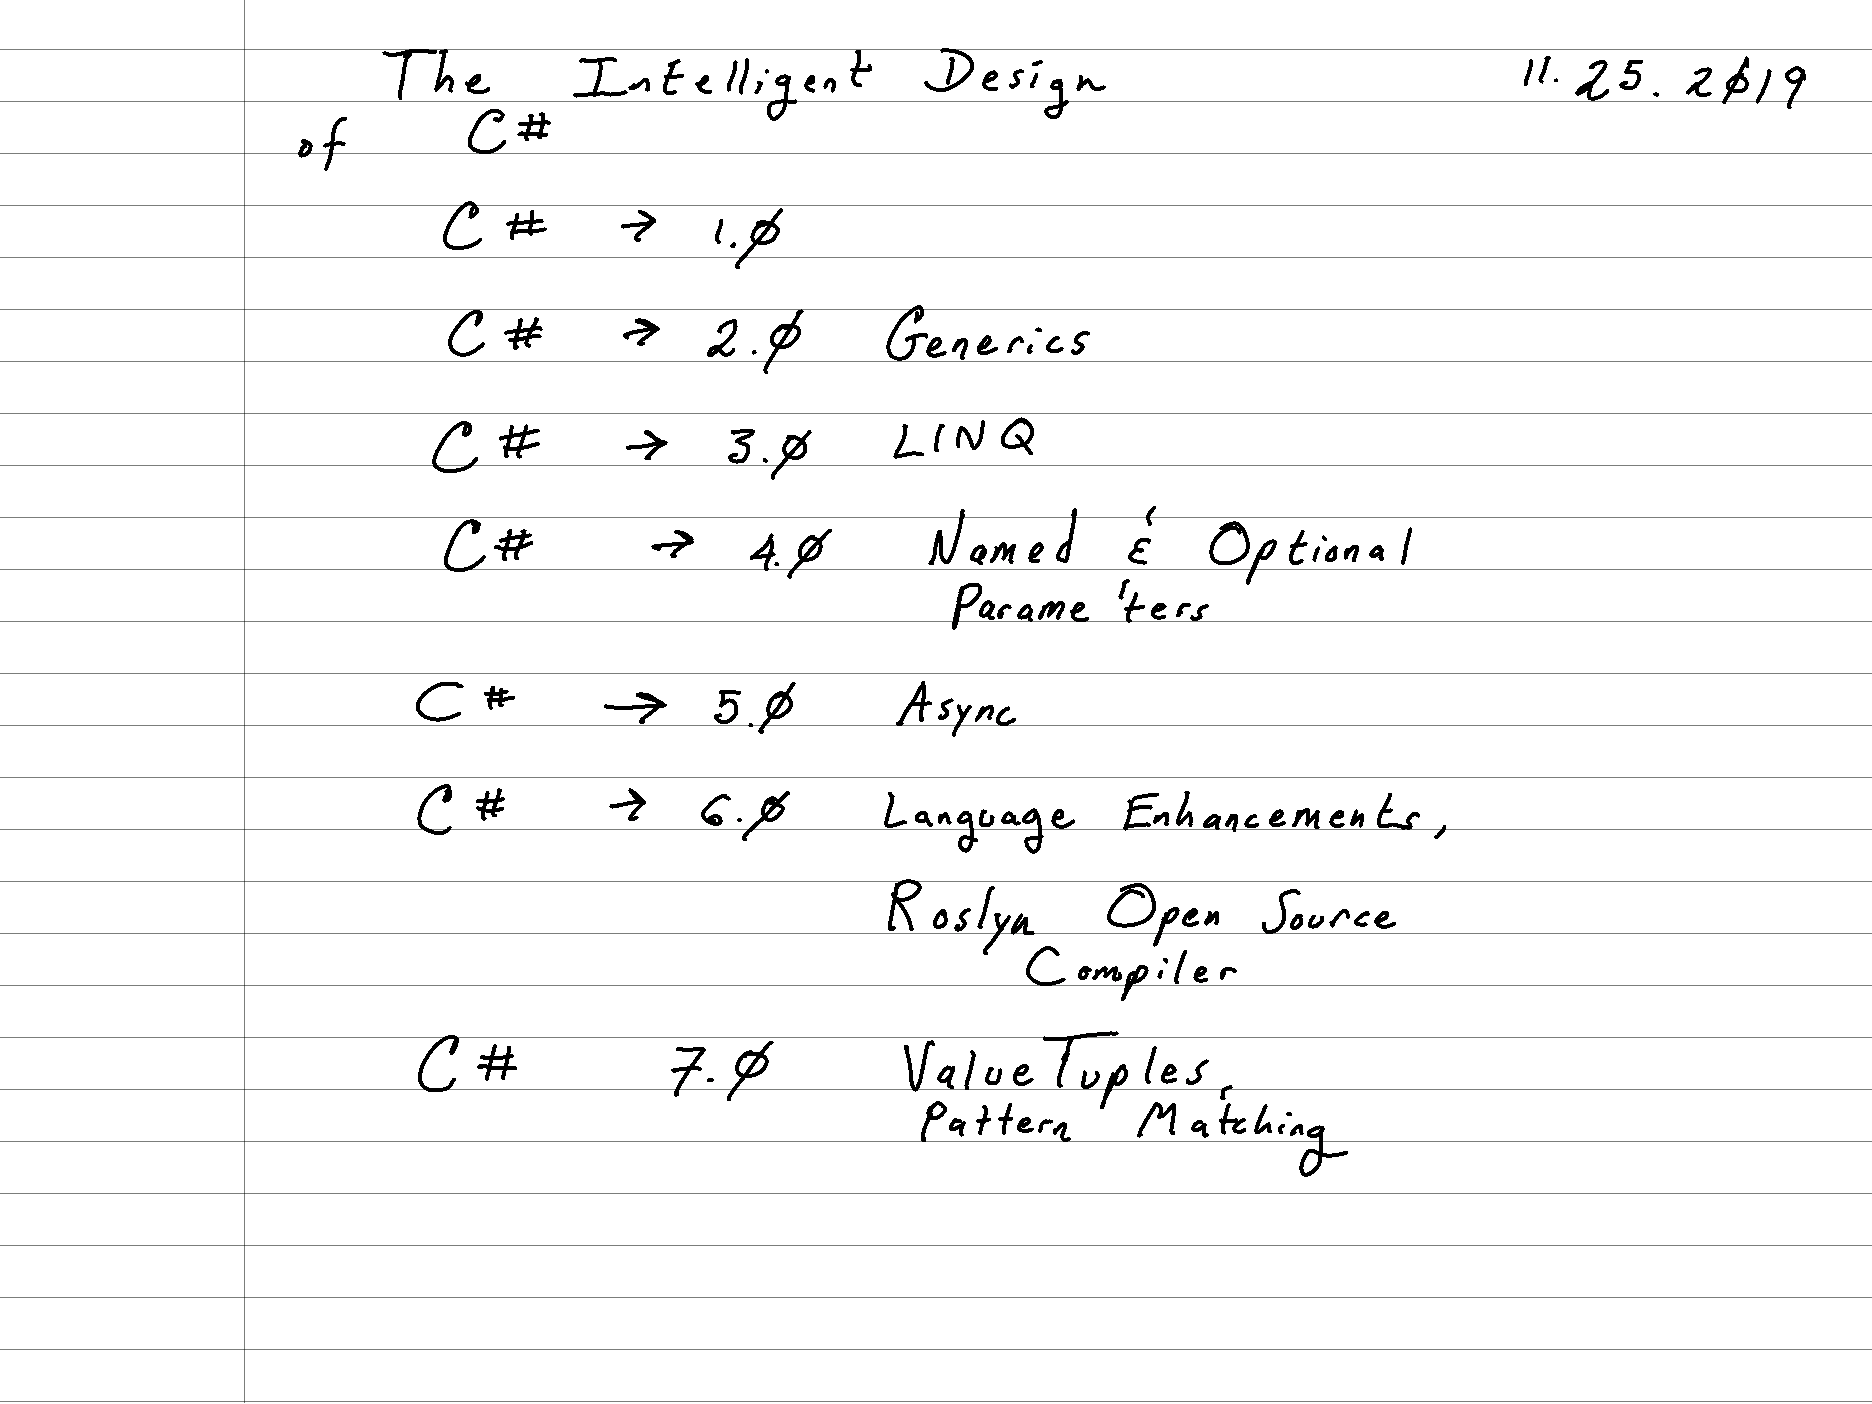 The Intelligent Design 11.25.2019
of C#
C# → 1.0
C# → 2.0 Generics
C# → 3.0 LINQ
C# → 4.0 Named & Optional
Parameters
C# → 5.0 Async
C# → 6.0 Language Enhancements,
Roslyn Open Source
Compiler
C# 7.0 ValueTuples,
Pattern Matching